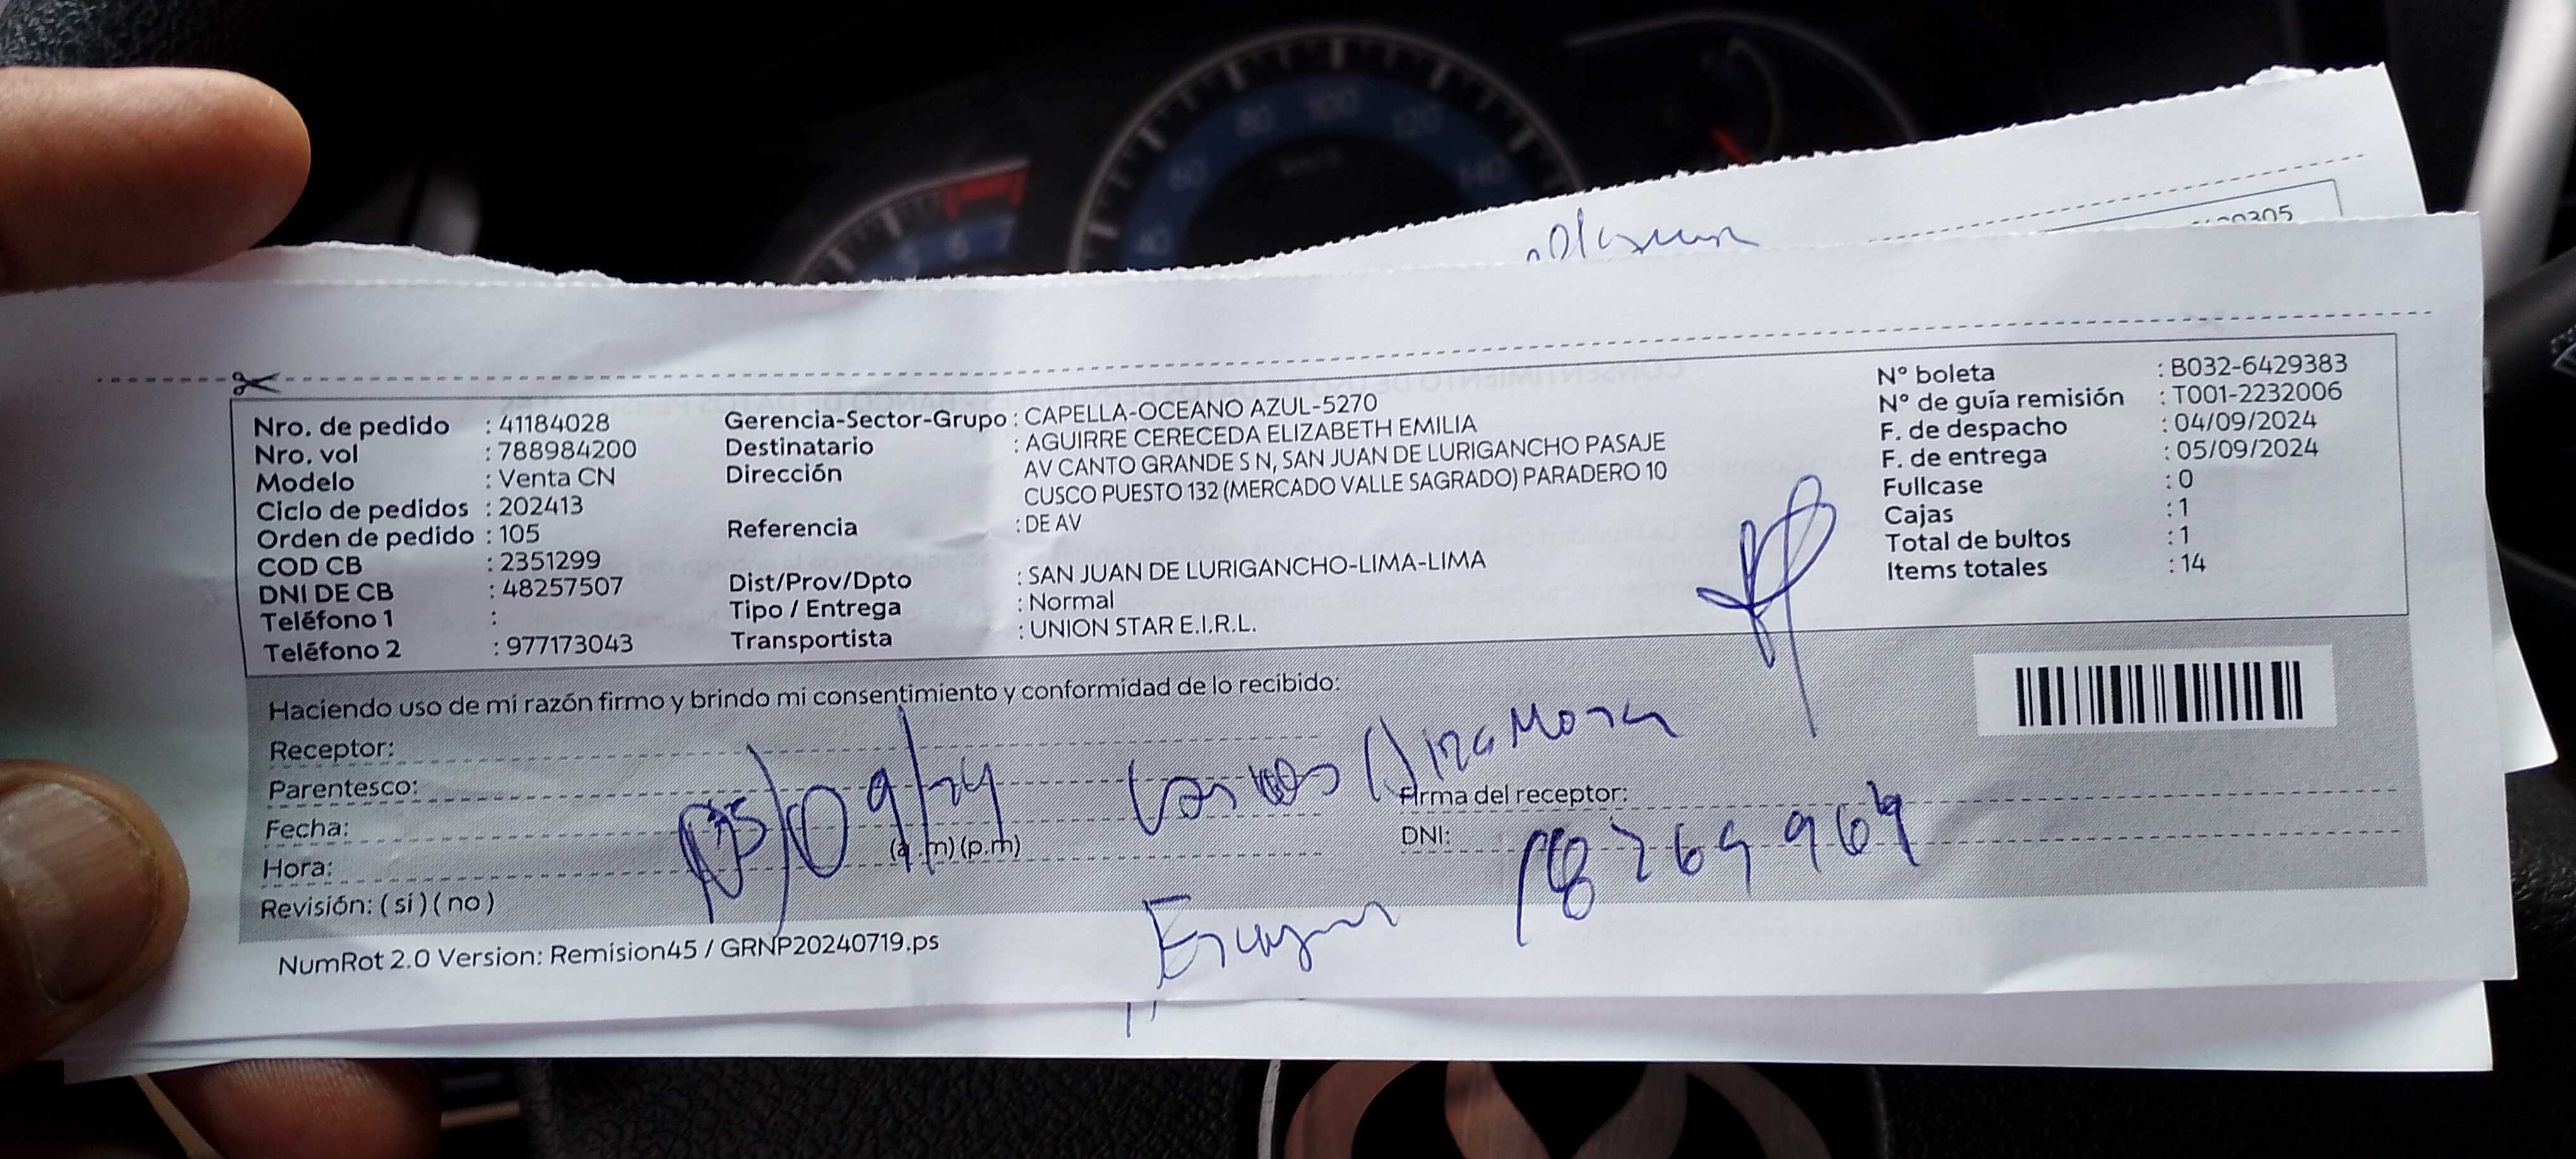 Nro. de pedido : 41184028
Nro. vol : 788984200
Modelo : Venta CN
Ciclo de pedidos : 202413
Orden de pedido : 105
COD CB : 2351299
DNI DE CB : 48257507
Teléfono 1 :
Teléfono 2 : 977173043
Gerencia-Sector-Grupo : CAPELLA-OCEANO AZUL-5270
Destinatario : AGUIRRE CERECEDA ELIZABETH EMILIA
Dirección AV CANTO GRANDE S N, SAN JUAN DE LURIGANCHO PASAJE
CUSCO PUESTO 132 (MERCADO VALLE SAGRADO) PARADERO 10
Referencia : DE AV
Dist/Prov/Dpto : SAN JUAN DE LURIGANCHO-LIMA-LIMA
Tipo / Entrega : Normal
Transportista : UNION STAR E.I.R.L.
N° boleta : B032-6429383
N° de guía remisión : T001-2232006
F. de despacho : 04/09/2024
F. de entrega : 05/09/2024
Fullcase : 0
Cajas : 1
Total de bultos : 1
Items totales : 14
Haciendo uso de mi razón firmo y brindo mi consentimiento y conformidad de lo recibido:
Receptor:
Parentesco:
Fecha: 05/09/24
Hora: (a.m) (p.m)
Revisión: ( si ) ( no )
Firma del receptor:
DNI:
NumRot 2.0 Version: Remision45 / GRNP20240719.ps
40
60
80
100
120
140
km/h
6